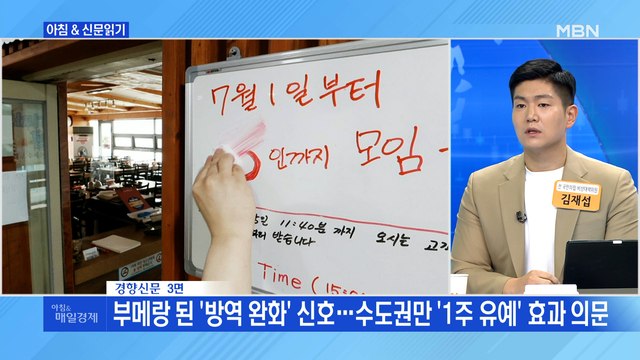 아침 & 신문읽기
MBN
7월 1일부터
인까지 모임
11:40분 까지 오시는 고
받습니다
Time (15:
김재섭
경향신문 3면
아침&
매일경제
부메랑 된 '방역 완화' 신호…수도권만 '1주 유예' 효과 의문